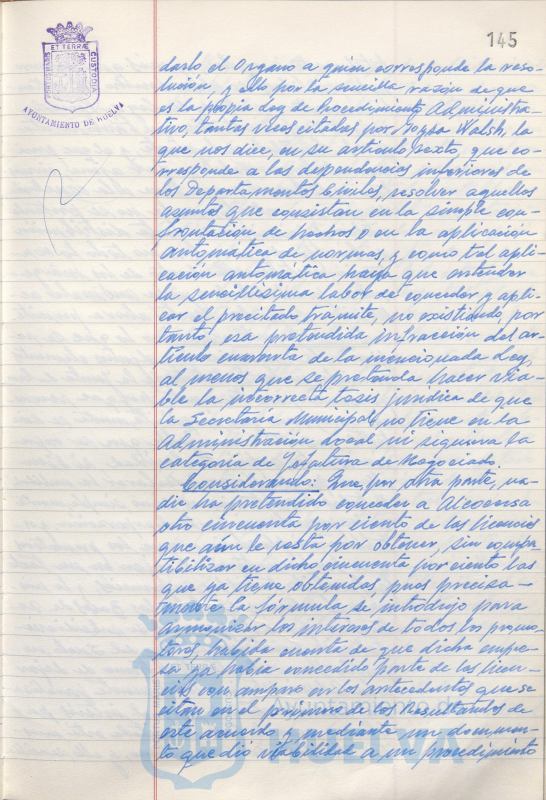 145
PORTUS MARIS ET TERRAE CUSTODIA
AYUNTAMIENTO DE HUELVA
darlo el Organo a quien corresponde la reso-
lución, y ello por la sencilla razón de que
es la propia Ley de Procedimiento Administra-
tivo, tantas veces citadas por Walsh, la
que nos dice, en su artículo sexto, que co-
rresponde a las dependencias inferiores de
los Departamentos Civiles, resolver aquellos
asuntos que consistan en la simple con-
frontación de hechos o en la aplicación
automática de normas, y como tal apli-
cación automática haya que entender
la sencillísima labor de conceder y apli-
car el precitado trámite, no existiendo, por
tanto, esa pretendida infracción del ar-
tículo cuarenta de la mencionada Ley,
al menos que se pretenda hacer via-
ble la incorrecta tesis jurídica de que
la Secretaría Municipal no tiene en la
Administración Local ni siquiera la
categoría de Jefatura de Negociado.
Considerando: Que, por otra parte, na-
die ha pretendido conceder a Alcocensa
otro cincuenta por ciento de las licencias
que aún le resta por obtener, sin compa-
tibilizar en dicho cincuenta por ciento las
que ya tiene obtenidas pues precisa-
mente la fórmula se introdujo para
armonizar los intereses de todos los promo-
tores, habida cuenta de que dicha empre-
sa ya había concedido parte de las licen-
cias con amparo en los antecedentes que se
citan en el primero de los Resultandos de
este acuerdo y mediante un documen-
to que dió viabilidad a un procedimiento